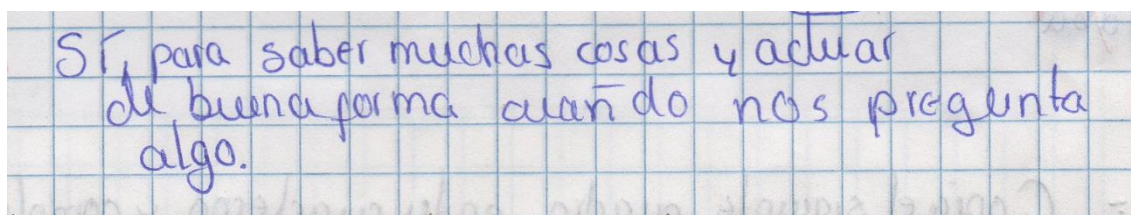 Sí, para saber muchas cosas y actuar
de buena forma cuando nos pregunta
algo.